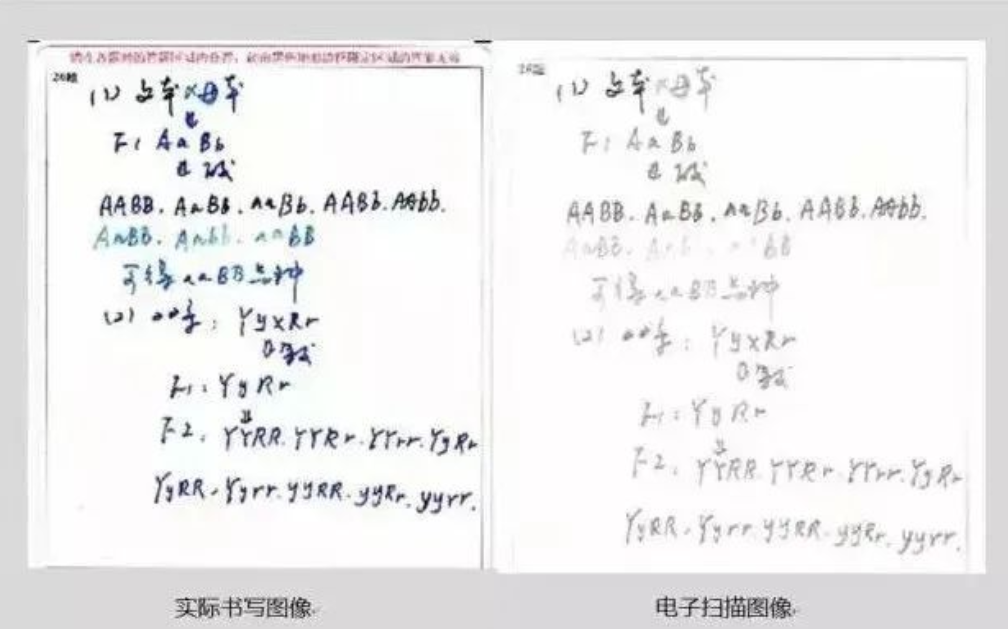 26题
(1) 父本×母本
F1 AaBb
AABB. AaBb. aaBb. AABb. AAbb.
AaBB. Aabb. aaBB
可得aaBB品种
(2) : YyxRr
F1: YyRr
F2. YYRR. YYRr. YYrr. YyRr
YyRR. Yyrr. yyRR. yyRr. yyrr.
实际书写图像.
(1) 父本×母本
F1 AaBb
AABB. AaBb. aaBb. AABb. AAbb.
可得aaBB品种
(2) : YyxRr
F1: YyRr
F2. YYRR. YYRr. YYrr. YyRr
YyRR. Yyrr. yyRR. yyRr. yyrr.
电子扫描图像.